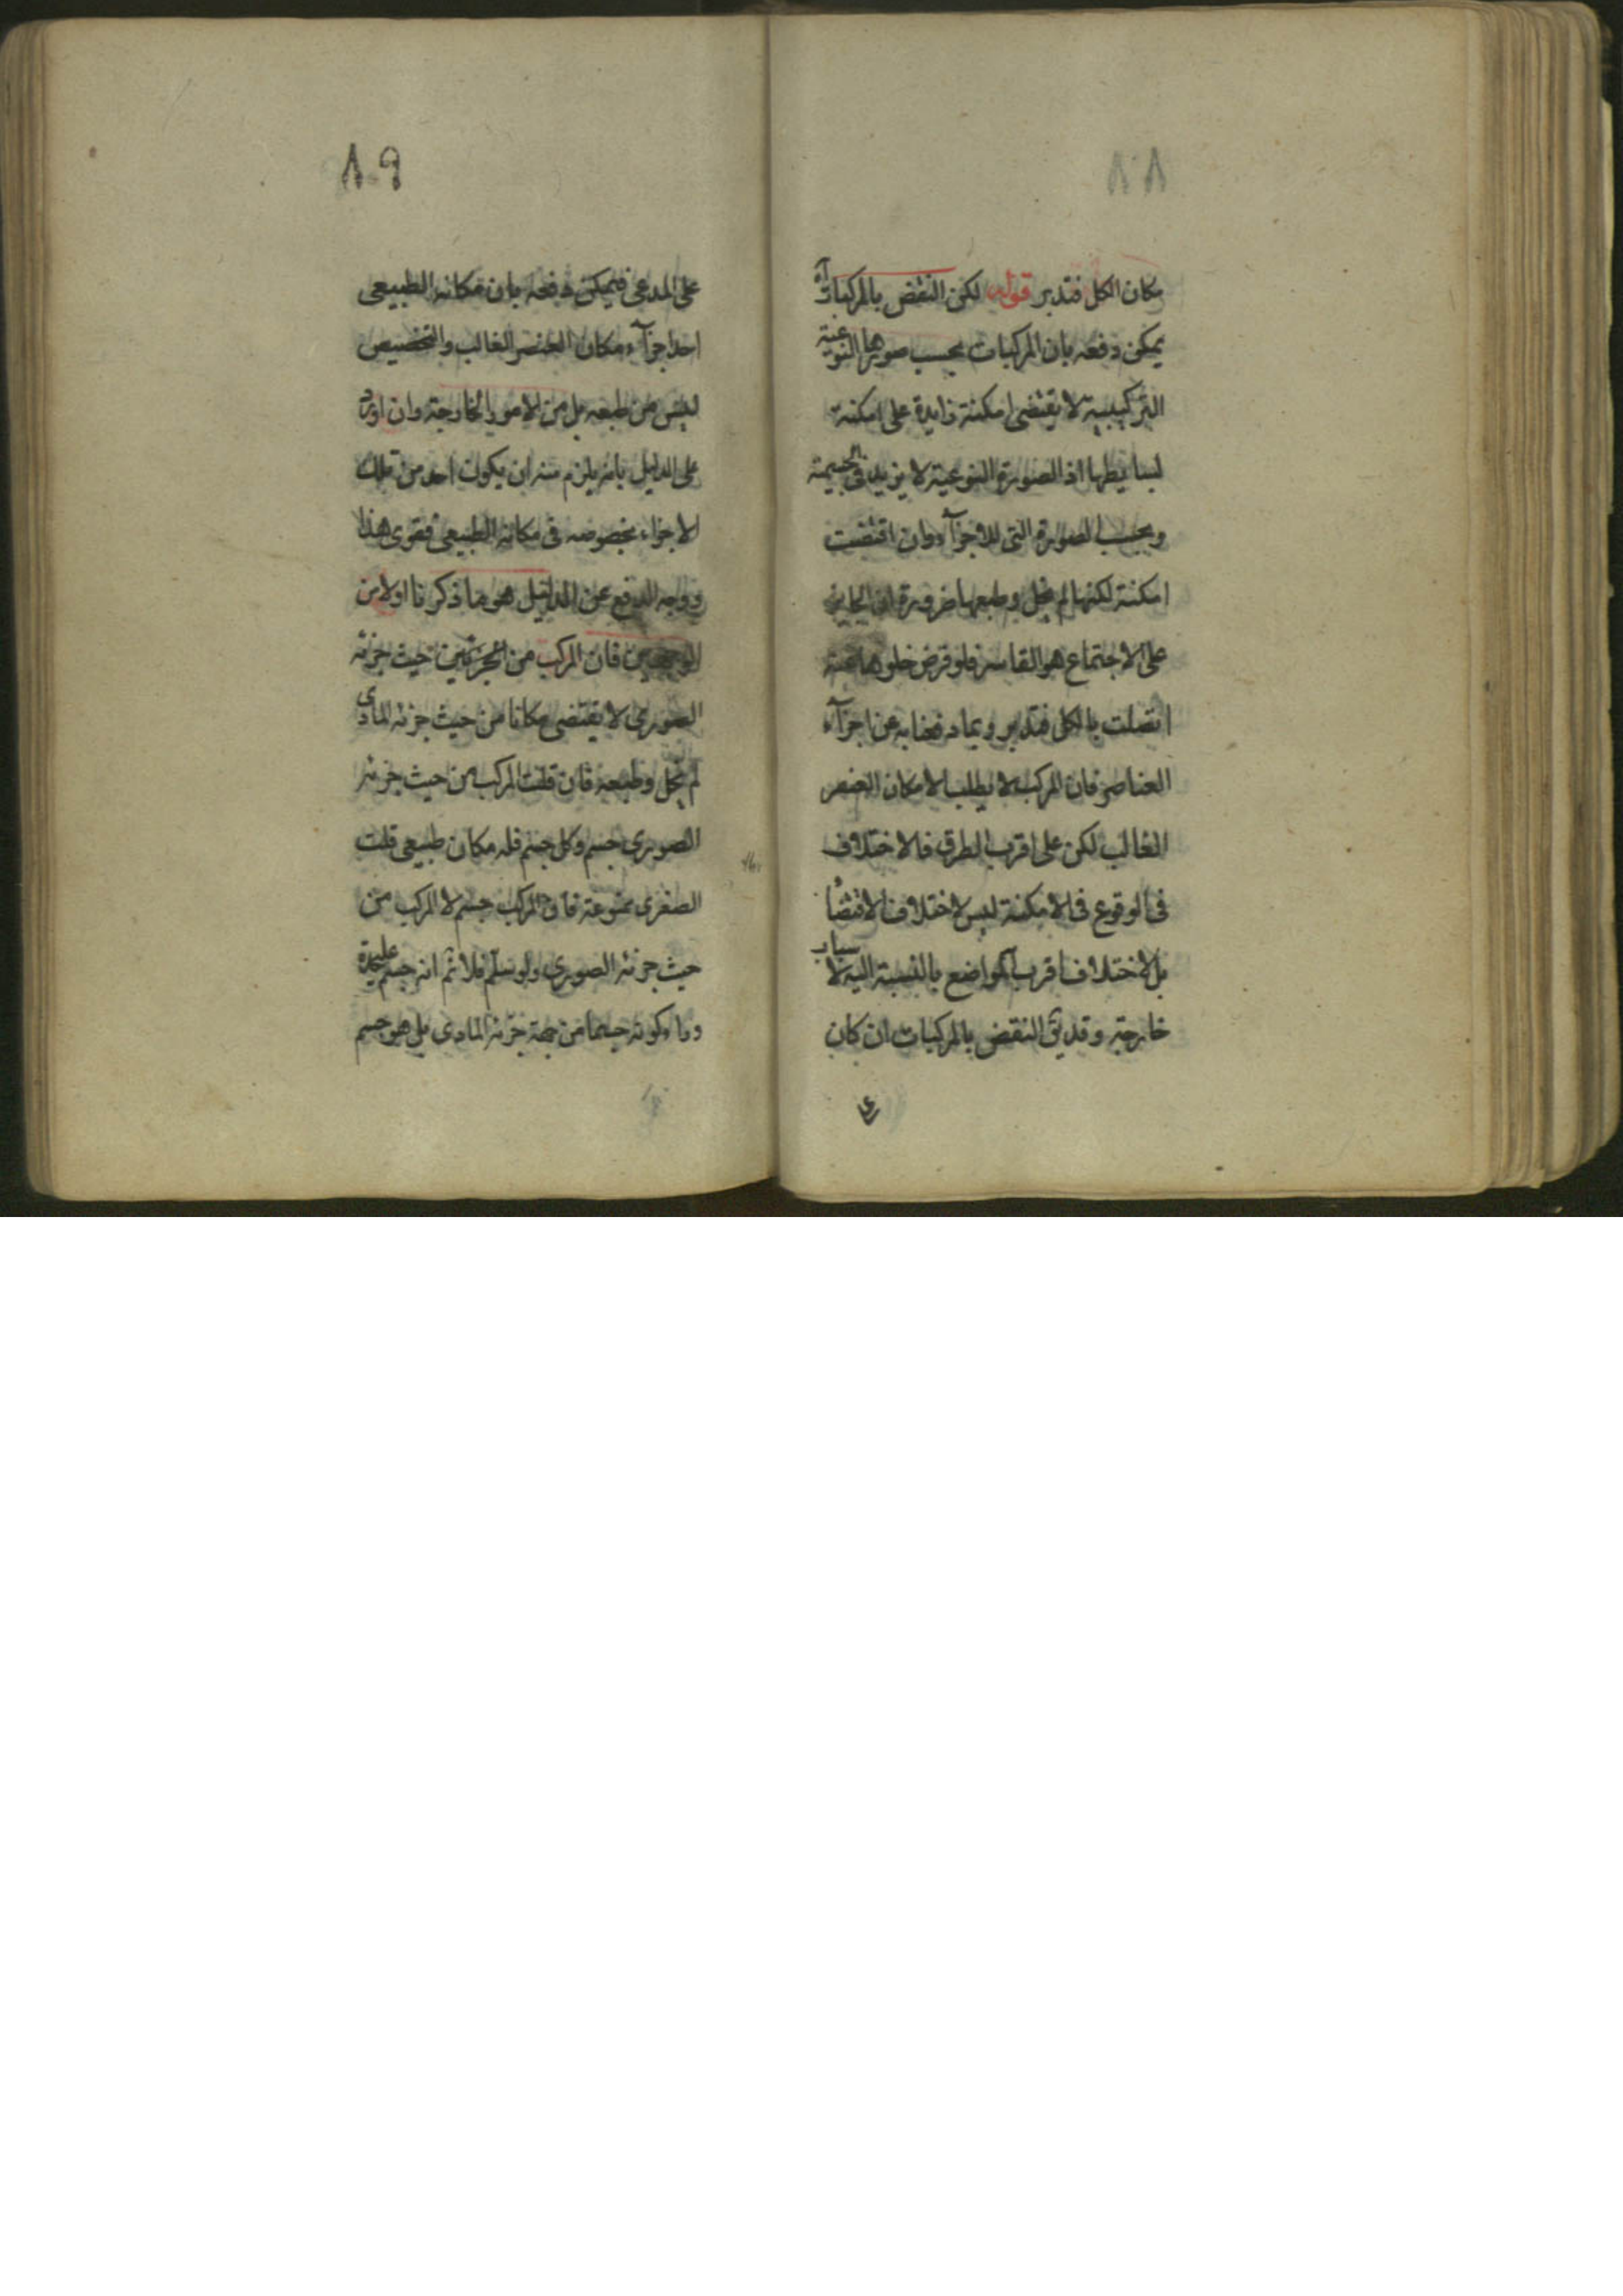 ٨٨
مكان الكل فتدبر قوله لكن النقض بالمركبات آه
يمكن دفعه بان المركبات بحسب صورها النوعية
التركيبية لا يقتضى امكنة زايدة على امكنة
بسايطها اذ الصورة النوعية لا يزيد فى الجسمية
وبحسب الصورة التى للاجزآء وان اقتضت
امكنة لكنها لم يخل وطبعها ضرورة ان الجابر
على الاجتماع هو القاسر فلو فرض خلوها عنه
اتصلت بالكل فتدبر وبما دفعنا به عن اجزآء
العناصر فان المركب لا يطلب الا مكان العنصر
الغالب لكن على اقرب الطرق فالاختلاف
فى الوقوع فى الامكنة ليس لاختلاف الاقتضاء
بل لاختلاف اقرب المواضع بالنسبة اليه لاسباب
خارجة وقد يق النقض بالمركبات ان كان
٨٩
على المدعى فيمكن دفعه بان مكانه الطبيعى
احد اجزآء مكان العنصر الغالب والتخصيص
ليس من طبعه بل من الامور الخارجة وان اورد
على الدليل بانه يلزم منه ان يكون احد من تلك
الاجزاء بخصوصه فى مكانه الطبيعى فقوى هذا
ووجه الدفع عن الدليل هو ما ذكرنا اولا من
الوجهين فان المركب من الجزئين من حيث جزئه
الصورى لا يقتضى مكانا من حيث جزئه المادى
لم يخل وطبعه فان قلت المركب من حيث جزئه
الصورى جسم وكل جسم فله مكان طبيعى قلت
الصغرى ممنوعة فان المركب جسم لا المركب من
حيث جزئه الصورى ولو سلم فلا ثم انه جسم عليحدة
وراء كونه جسما من جهة جزئه المادى بل هو جسم